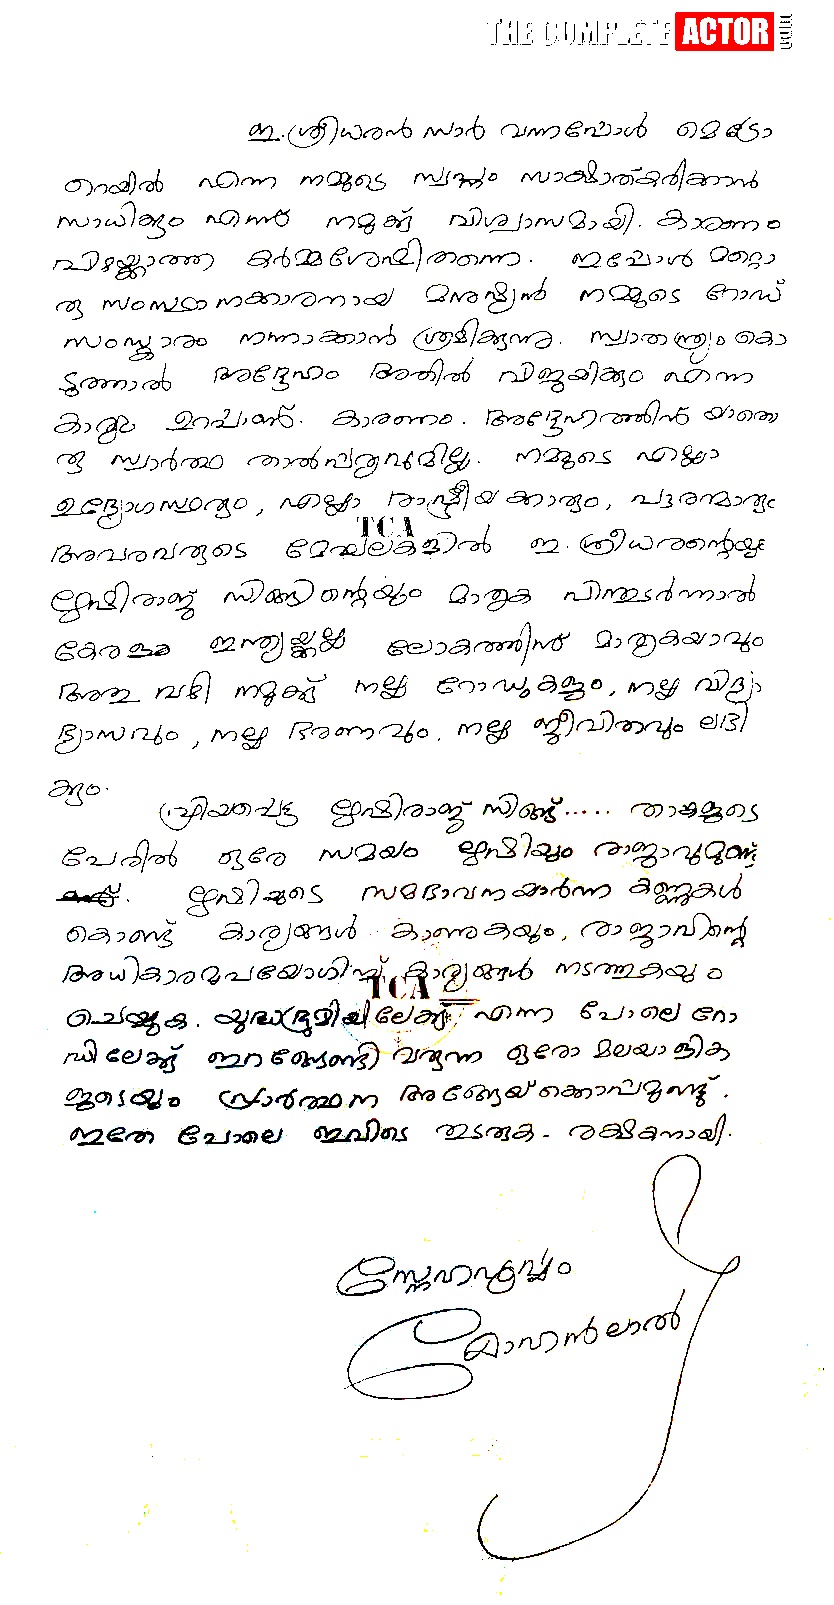 THE COMPLETE ACTOR
ഇ. ശ്രീധരൻ സാർ വന്നപ്പോൾ മെട്രോ
റെയിൽ എന്ന നമ്മുടെ സ്വപ്നം സാക്ഷാത്കരിക്കാൻ
സാധിക്കും എന്ന് നമുക്ക് വിശ്വാസമായി. കാരണം
വിട്ടുകൊടുക്കാത്ത കർമ്മശേഷിതന്നെ. ഇപ്പോൾ മറ്റൊ
രു സംസ്ഥാനക്കാരനായ മനുഷ്യൻ നമ്മുടെ റോഡ്
സംസ്കാരം നന്നാക്കാൻ ശ്രമിക്കുന്നു. സ്വാതന്ത്ര്യം കൊ
ടുത്താൽ അദ്ദേഹം അതിൽ വിജയിക്കും എന്ന
കാര്യം ഉറപ്പാണ്. കാരണം. അദ്ദേഹത്തിന് യാതൊ
രു സ്വാർത്ഥ താൽപര്യവുമില്ല. നമ്മുടെ എല്ലാ
ഉദ്യോഗസ്ഥരും, എല്ലാ രാഷ്ട്രീയക്കാരും, പൗരന്മാരും
TCA
അവരവരുടെ മേഖലകളിൽ ഇ. ശ്രീധരന്റെയും
ഋഷിരാജ് സിങ്ങിന്റെയും മാതൃക പിന്തുടർന്നാൽ
കേരളം ഇന്ത്യയ്ക്കല്ല ലോകത്തിന് മാതൃകയാവും
അതു വഴി നമുക്ക് നല്ല റോഡുകളും, നല്ല വിദ്യാ
ഭ്യാസവും, നല്ല ഭരണവും, നല്ല ജീവിതവും ലഭി
ക്കും.
പ്രിയപ്പെട്ട ഋഷിരാജ് സിങ്ങ്..... താങ്കളുടെ
പേരിൽ ഒരേ സമയം ഋഷിയും രാജാവുമുണ്ട്
. ഋഷിയുടെ സമഭാവനയാർന്ന കണ്ണുകൾ
കൊണ്ട് കാര്യങ്ങൾ കാണുകയും, രാജാവിന്റെ
അധികാരമുപയോഗിച്ച് കാര്യങ്ങൾ നടത്തുകയും
TCA
ചെയ്യുക. യുദ്ധഭൂമിയിലേക്ക് എന്ന പോലെ റോ
ഡിലേക്ക് ഇറങ്ങേണ്ടി വരുന്ന ഒരോ മലയാളിക
ളുടെയും പ്രാർത്ഥന അങ്ങേയ്ക്കൊപ്പമുണ്ട്.
ഇതേ പോലെ ഇവിടെ തുടരുക. രക്ഷകനായി.
സ്നേഹപൂർവ്വം
മോഹൻലാൽ